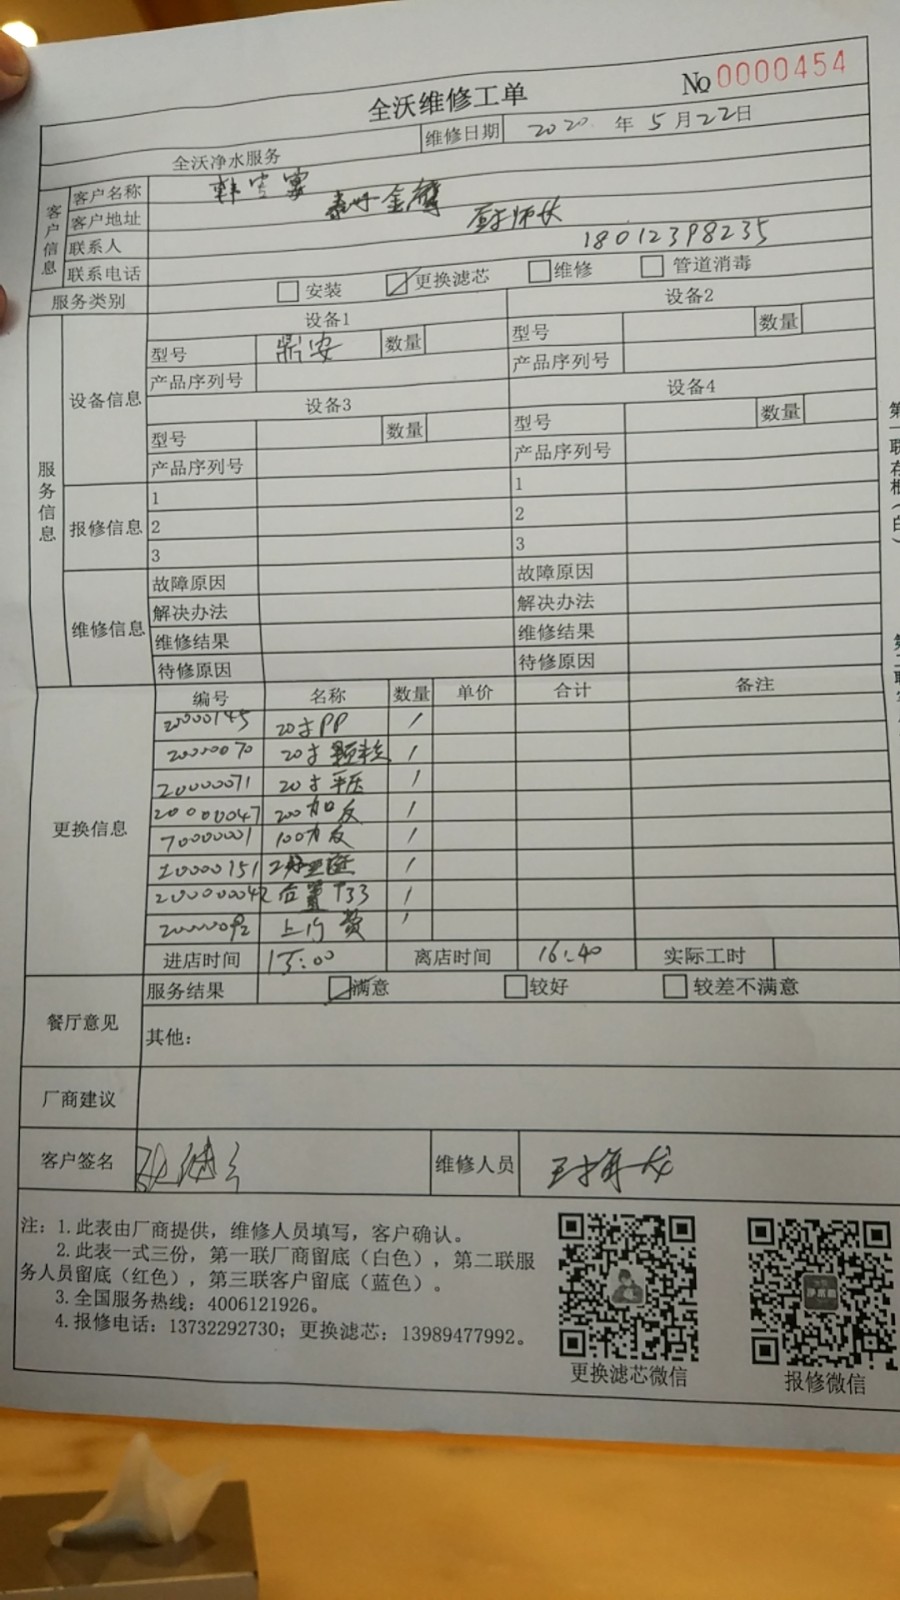 全沃维修工单
№ 0000454
全沃净水服务 维修日期 2020 年 5 月 22 日
客户信息
客户名称 韩宫宴
客户地址 金鹰
联系人 厨师长
联系电话 18012398235
服务类别 安装 更换滤芯 维修 管道消毒
服务信息
设备信息
设备1 设备2
型号 鼎安 数量 型号 数量
产品序列号 产品序列号
设备3 设备4
型号 数量 型号 数量
产品序列号 产品序列号
报修信息
1 1
2 2
3 3
维修信息
故障原因 故障原因
解决办法 解决办法
维修结果 维修结果
待修原因 待修原因
更换信息
编号 名称 数量 单价 合计 备注
20000145 20寸PP 1
20000070 20寸颗粒 1
20000071 20寸平压 1
20000047 200加反 1
70000001 100加反 1
20000151 1
200000042 后置T33 1
20000092 上门费 1
进店时间 15:00 离店时间 16:40 实际工时
餐厅意见
服务结果 满意 较好 较差不满意
其他：
厂商建议
客户签名 维修人员
注：1.此表由厂商提供，维修人员填写，客户确认。
2.此表一式三份，第一联厂商留底（白色），第二联服
务人员留底（红色），第三联客户留底（蓝色）。
3.全国服务热线：4006121926。
4.报修电话：13732292730；更换滤芯：13989477992。
更换滤芯微信 报修微信
第一联存根（白）